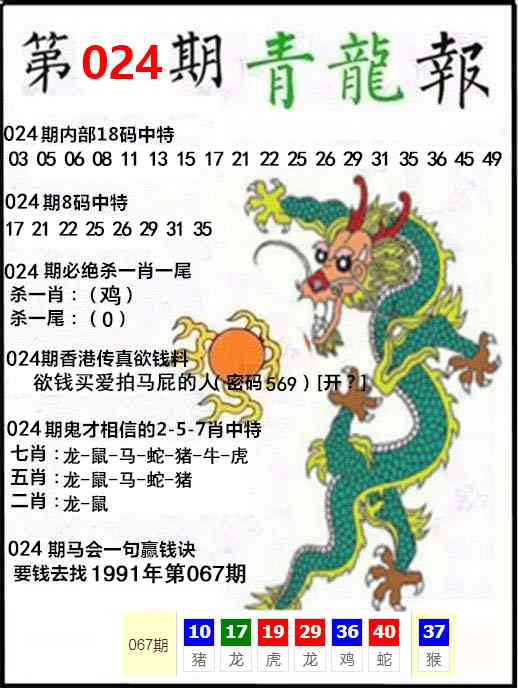 第024期青龍報
024期内部18码中特
03 05 06 08 11 13 15 17 21 22 25 26 29 31 35 36 45 49
024期8码中特
17 21 22 25 26 29 31 35
024 期必绝杀一肖一尾
杀一肖：（鸡）
杀一尾：（0）
024期香港传真欲钱料
欲钱买爱拍马屁的人（密码569）[开？]
024期鬼才相信的2-5-7肖中特
七肖：龙-鼠-马-蛇-猪-牛-虎
五肖：龙-鼠-马-蛇-猪
二肖：龙-鼠
024 期马会一句赢钱诀
要钱去找1991年第067期
067期 10 17 19 29 36 40 37
猪 龙 虎 龙 鸡 蛇 猴